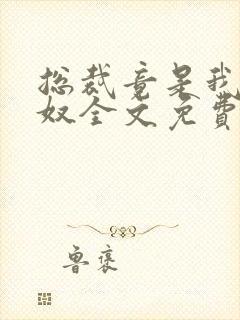 总裁竟是我
奴全文免费
鲁褒